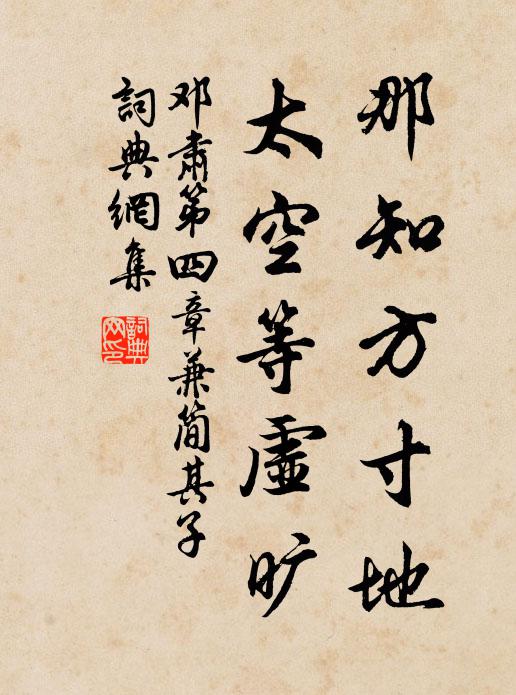 那知方寸地
太空等虚旷
邓肃第四章兼简其子
詞典網集
詞典
网印